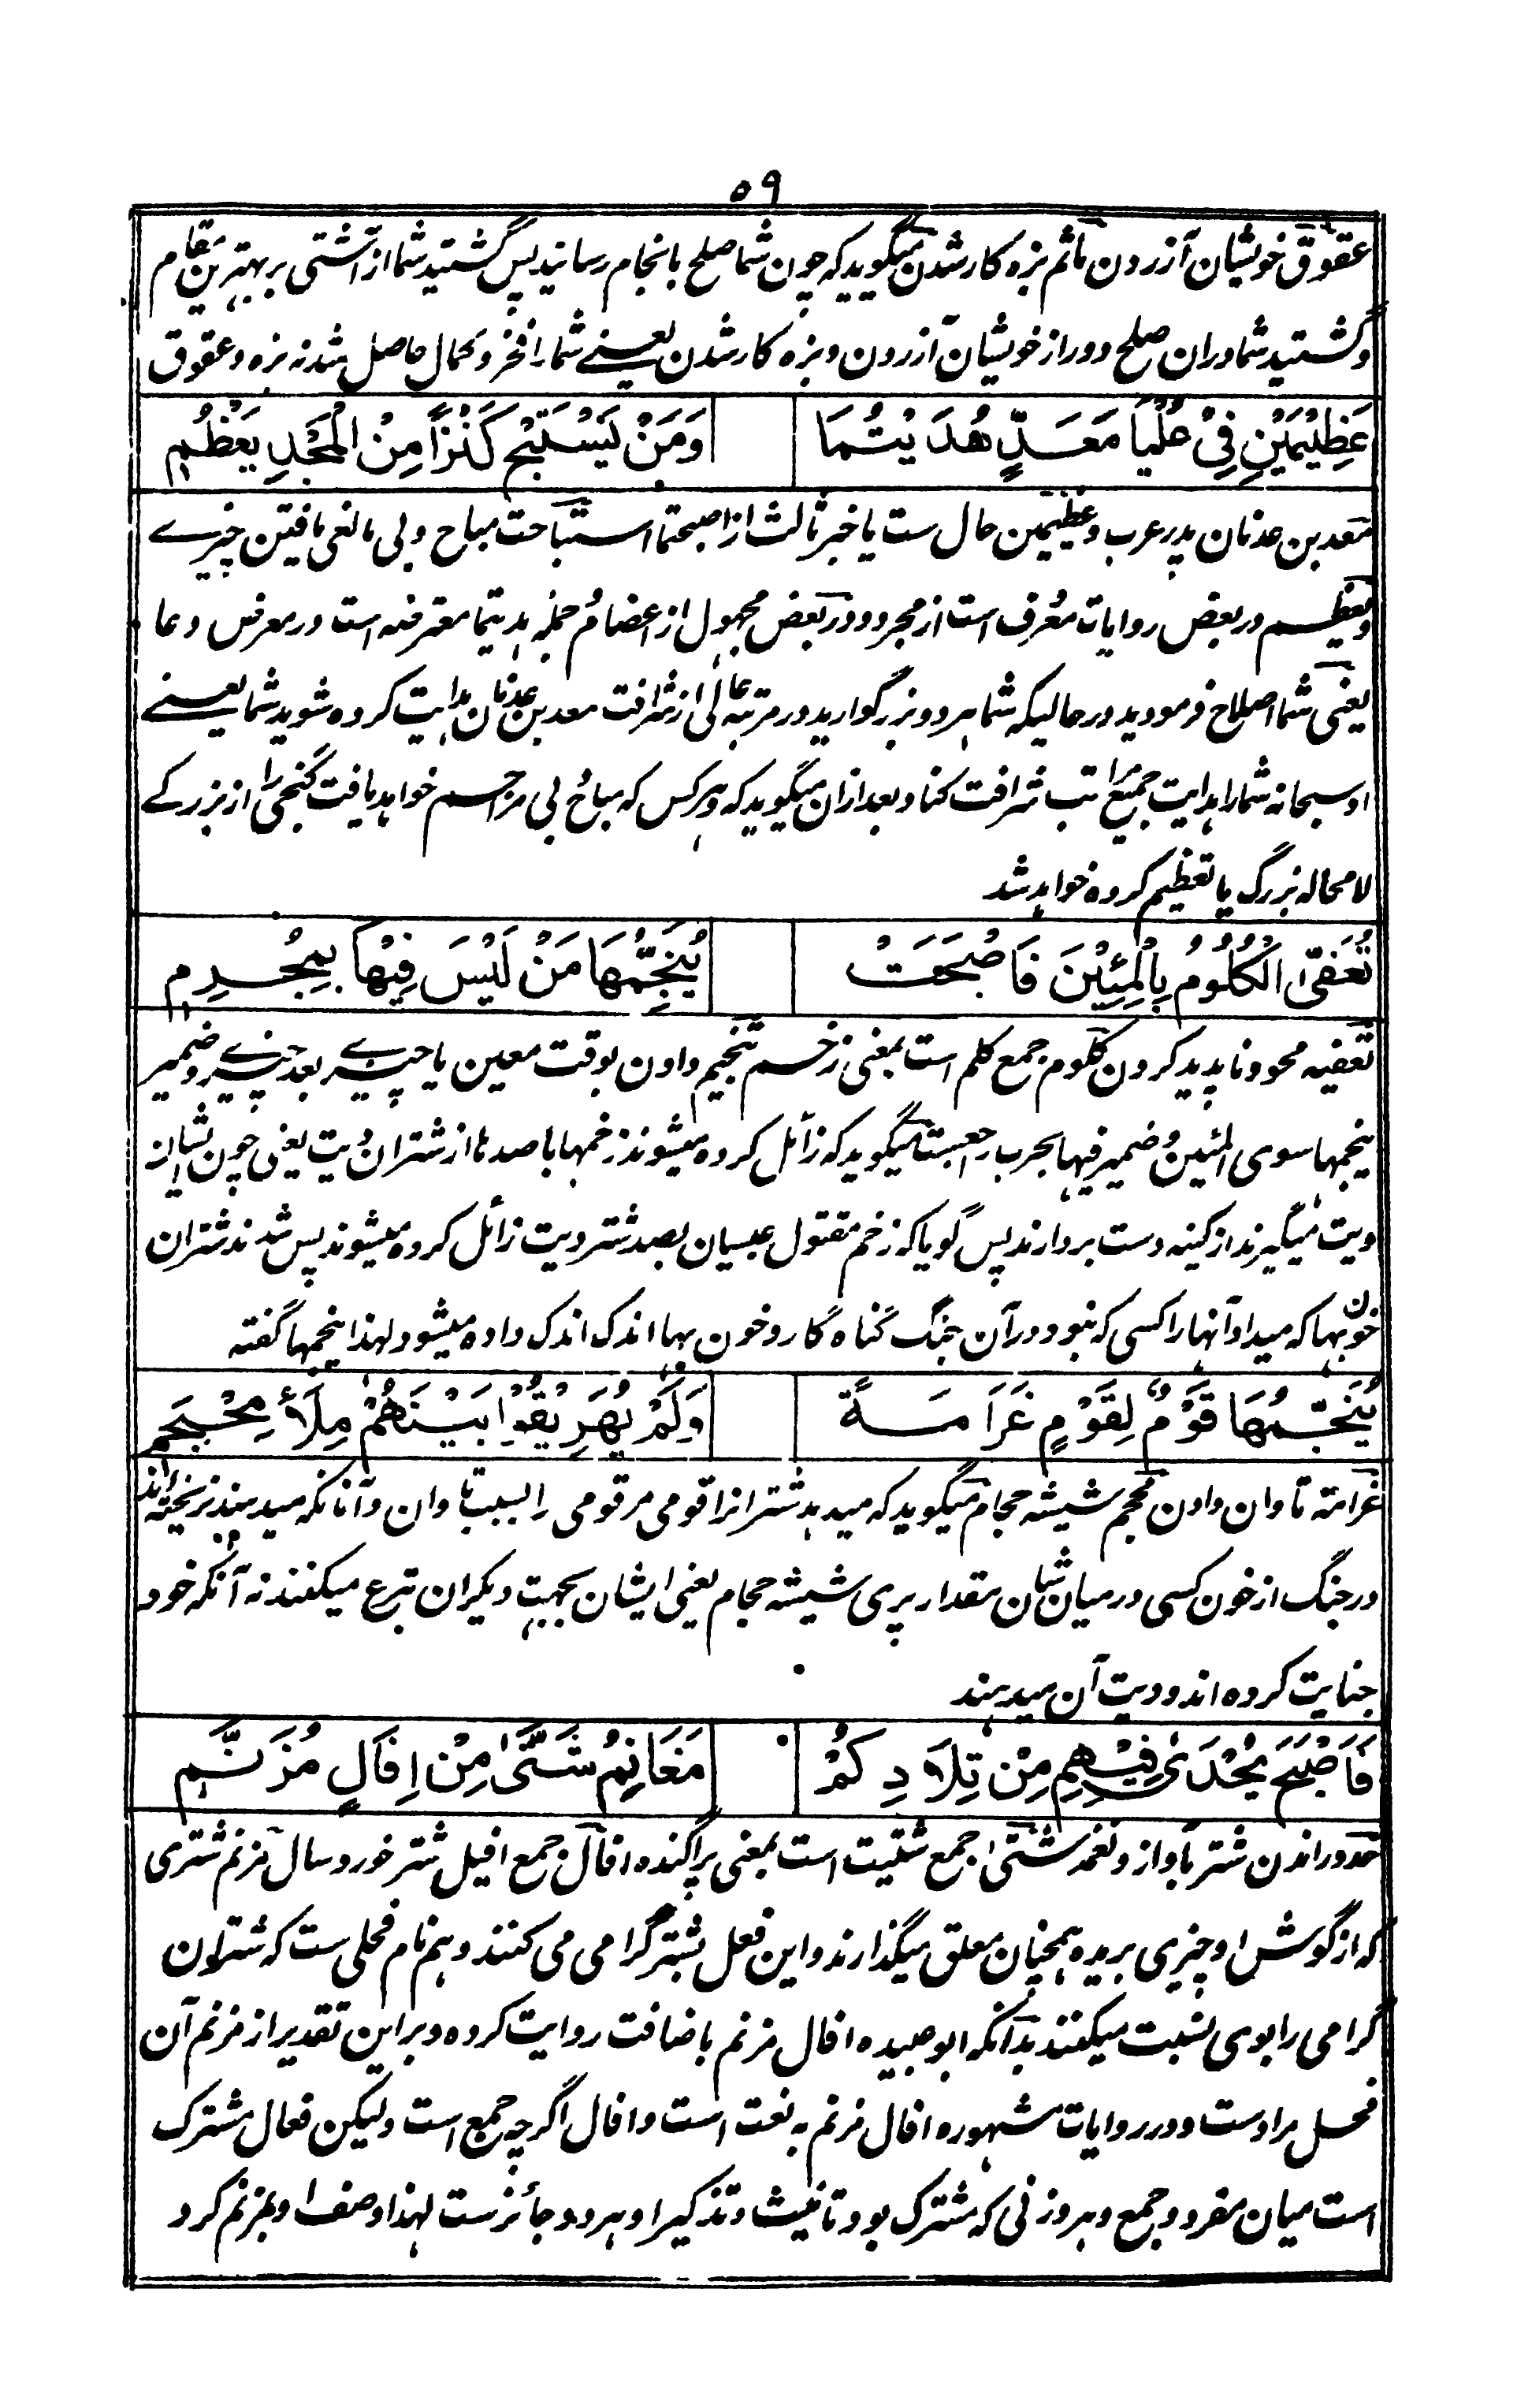 ۵۹
عقوق خویشان آزردن ماثم بزه کار شدن میگوید که چون شما صلح بانجام رسانیدید پس گشتید شما از آشتی بر بهترین مقام
و گشتید شما دران صلح دور از خویشان آزردن و بزه کار شدن یعنے شما را فخر و کمال حاصل شد نه بزه و عقوق
عَظِيْمَيْنِ فِيْ عُلْيَا مَعَدٍّ هُدِيْتُمَا وَمَنْ يَسْتَبِحْ كَنْزًا مِنَ الْمَجْدِ يَعْظُمِ
معد بن عدنان پدر عرب و عظیمین حال ست یا خبر ثالث از اصبحتما استباحت مباح و بی مانعی یافتن چیزے
و یعظم در بعض روایات معرف است از مجرد و در بعض مجهول از اعضام جمله هدیتما معترضه است در معرض دعا
یعنی شما اصلاح فرمودید در حالیکه شما هر دو بزرگوارید در مرتبه عالی از شرافت معد بن عدنان هدایت کرده شوید شما یعنے
او سبحانه شما را هدایت جمیع مراتب شرافت کناد بعد ازان میگوید که و هر کس که مباح بی مزاحم خواهد یافت گنجی را از بزرگے
لا محاله بزرگ یا تعظیم کرده خواهد شد
تُعَفّٰى الْكُلُوْمُ بِالْمِئِيْنَ فَاَصْبَحَتْ يُنَجِّمُهَا مَنْ لَيْسَ فِيْهَا بِمُجْرِمِ
تعفیه محو و ناپدید کردن کلوم جمع کلم است بمعنی زخم تنجیم دادن بوقت معین یا چیزے بعد چیزے و ضمیر
ینجمها سوی المئین و ضمیر فیها بحرب راجعست میگوید که زائل کرده میشوند زخمها با صدها از شتران دیت یعنی چون ایشان
دیت میگیرند از کینه دست بردارند پس گویا که زخم مقتول عبسیان بصد شتر دیت زائل کرده میشوند پس شدند شتران
خون بها که میداد آنها را کسی که نبود در آن جنگ گناه گار و خون بها اندک اندک داده میشود لهذا ینجمها گفته
يُنَجِّمُهَا قَوْمٌ لِقَوْمٍ غَرَامَةً وَلَمْ يُهَرِيْقُوْا بَيْنَهُمْ مِلَأَ مِحْجَمِ
غرامة تاوان دادن محجم شیشه حجام میگوید که میدهد شتر انرا قومی مر قومی را بسبب تاوان و آنانکه میدهند نریخته اند
در جنگ از خون کسی در میان شان مقدار پری شیشه حجام یعنی ایشان بجهت دیگران تبرع میکنند نه آنکه خود
جنایت کرده اند و دیت آن میدهند
فَاَصْبَحَ يُحْدٰى فِيْهِمِ مِنْ تِلَادِكُمْ مَغَانِمُ شَتّٰى مِنْ اِفَالٍ مُزَنَّمِ
حدو راندن شتر بآواز و نغمه شتی جمع شتیت است بمعنی پراکنده افال جمع افیل شتر خورد سال مزنم شتری
که از گوش او چیزی بریده همچنان معلق میگذارند و این فعل بشتر گرامی می کنند و هم نام فحلی ست که شتران
گرامی را بوی نسبت میکنند بدانکه ابو عبیده افال مزنم باضافت روایت کرده و بر این تقدیر از مزنم آن
فحل مراد ست و در روایات مشهوره افال مزنم به نعت است و افال اگرچه جمع است ولیکن فعال مشترک
است میان مفرد و جمع و هر وزنی که مشترک بود تانیث و تذکیر او هر دو جائز ست لهذا وصف او بمزنم کرد